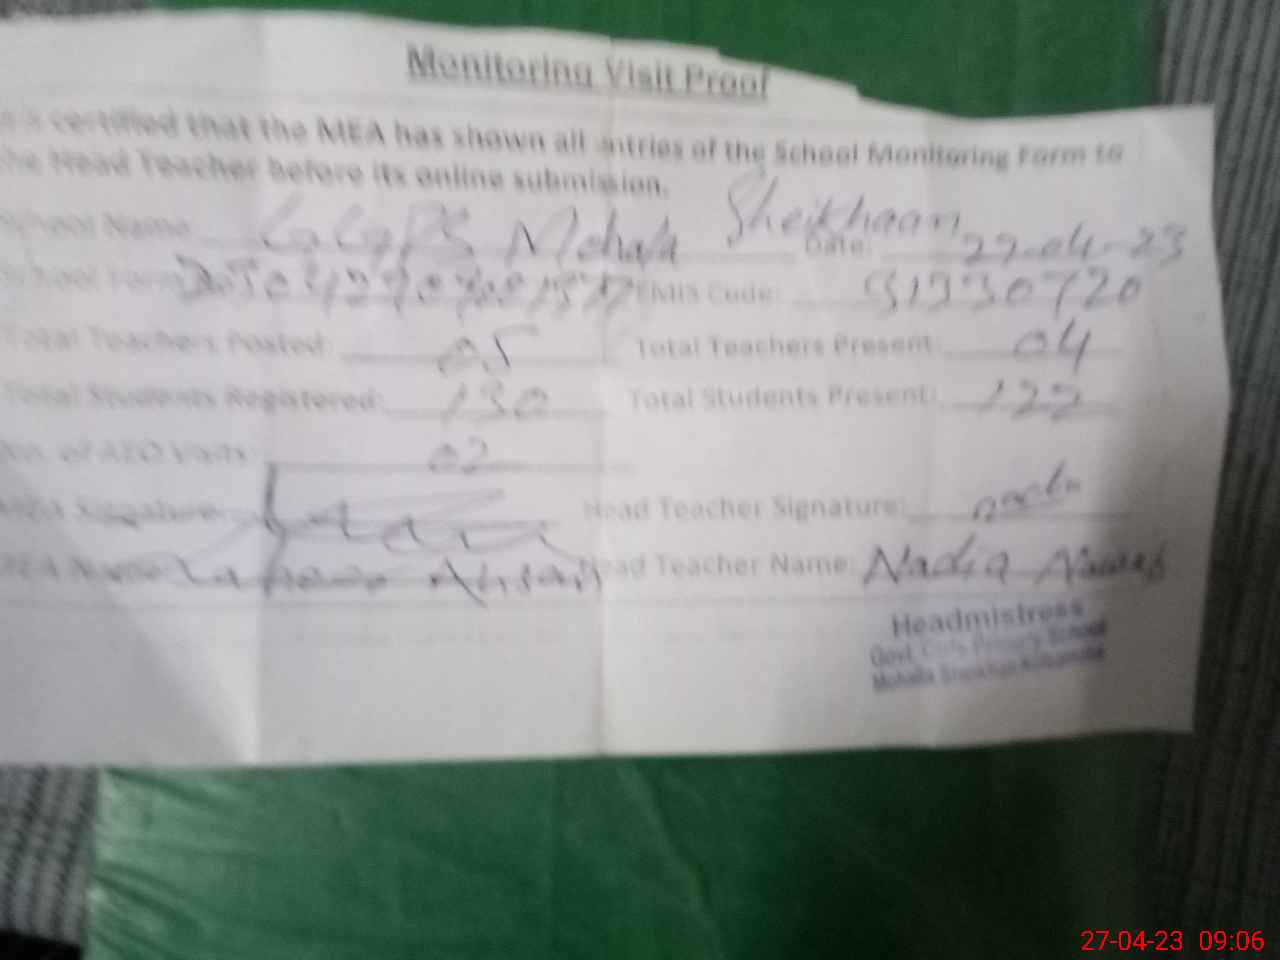 Monitoring Visit Proof
is certified that the MEA has shown all entries of the School Monitoring Form to
the Head Teacher before its online submission.
School Name: GGPS Mohala Sheikhaan Date: 27-04-23
School Form EMIS Code: 31330720
Total Teachers Posted: 05 Total Teachers Present: 04
Total Students Registered: 130 Total Students Present: 122
No. of AEO Visits: 02
MEA Signature: Head Teacher Signature:
MEA Name Ahsan Head Teacher Name: Nadia Nawab
Headmistress
Govt. Girls Primary School
Mohalla
27-04-23 09:06